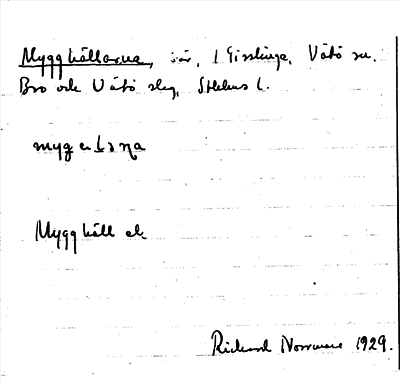 Mygghällarna, skär, i Gisslinge, Vätö sn.
Bro och Vätö skg, Sthlms l.
Mygghäll ek.
Rickard Norrman 1929.